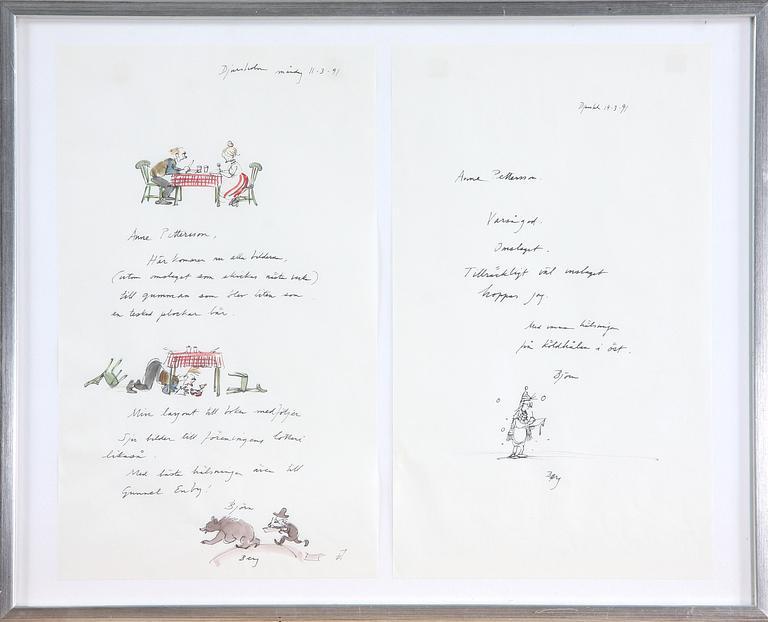 Djursholm måndag 11·3·91
Anne Pettersson,
Här kommer nu alla bilderna,
(utom omslaget som skickas nästa vecka)
till gumman som blev liten som
en tesked plockar bär.
Min layout till boken medföljer
Sju bilder till föreningens lotteri
likaså.
Med bästa hälsningar även till
Gunnel Enby!
Björn
Berg
Djursh 14·3·91
Anne Pettersson.
Varsågod.
Omslaget.
Tillräckligt väl inslaget
hoppas jag.
Med varma hälsningar
på köldhälen i öst.
Björn
Berg